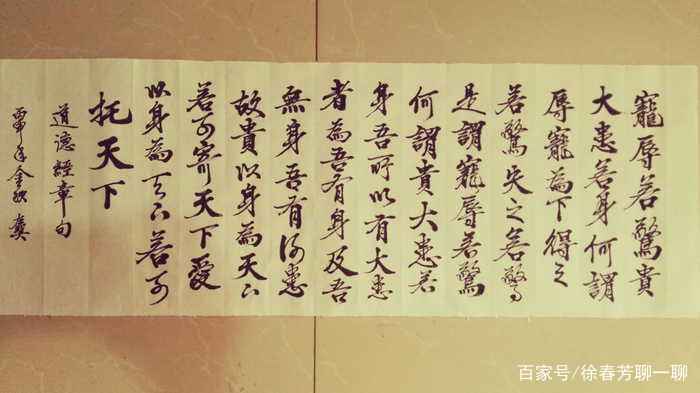 寵辱若驚貴
大患若身何謂
辱寵為下得之
若驚失之若驚
是謂寵辱若驚
何謂貴大患若
身吾所以有大患
者為吾有身及吾
無身吾有何患
故貴以身為天下
若可寄天下愛
以身為天下若可
托天下
道德經章句
金秋
百家号/徐春芳聊一聊